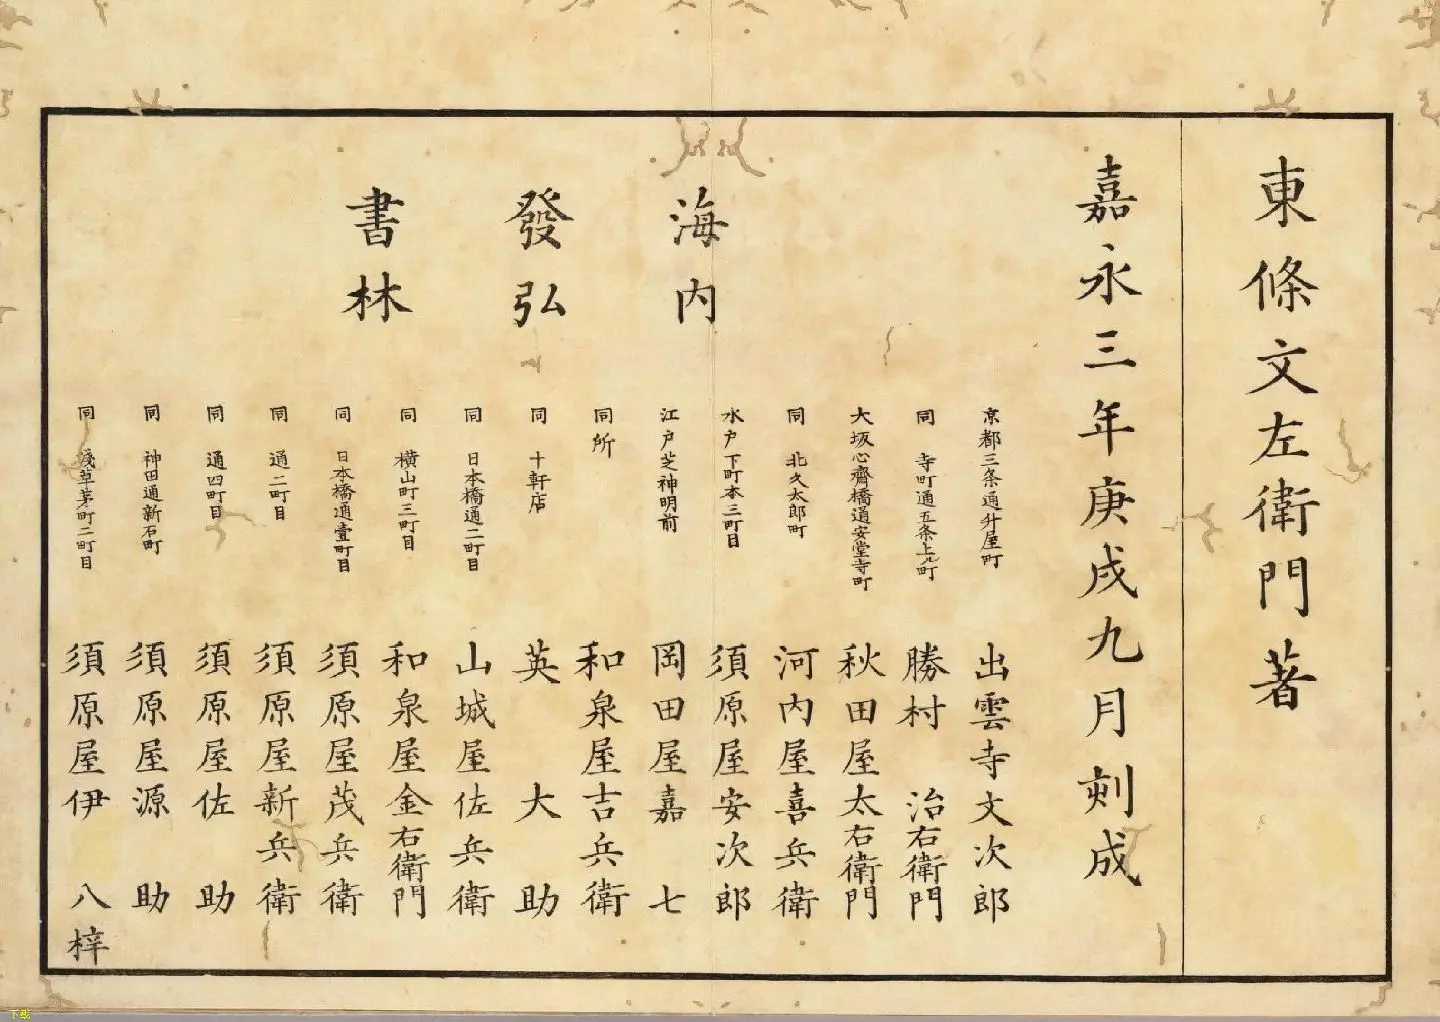 東條文左衛門著
嘉永三年庚戌九月刻成
海内
發弘
書林
京都三条通升屋町 出雲寺文次郎
同 寺町通五条上ル町 勝村治右衛門
大坂心齋橋通安堂寺町 秋田屋太右衛門
同 北久太郎町 河内屋喜兵衛
水戸下町本三町目 須原屋安次郎
江戸芝神明前 岡田屋嘉七
同所 和泉屋吉兵衛
同 十軒店 英大助
同 日本橋通二町目 山城屋佐兵衛
同 横山町三町目 和泉屋金右衛門
同 日本橋通壹町目 須原屋茂兵衛
同 通二町目 須原屋新兵衛
同 通四町目 須原屋佐助
同 神田通新石町 須原屋源助
同 淺草茅町二町目 須原屋伊八梓
下载